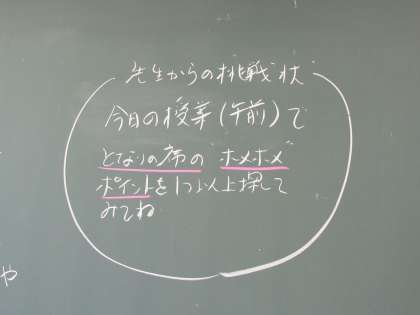 先生からの挑戦状
今日の授業(午前)で
となりの席の ホメホメ
ポイントを1つ以上探して
みてね
や